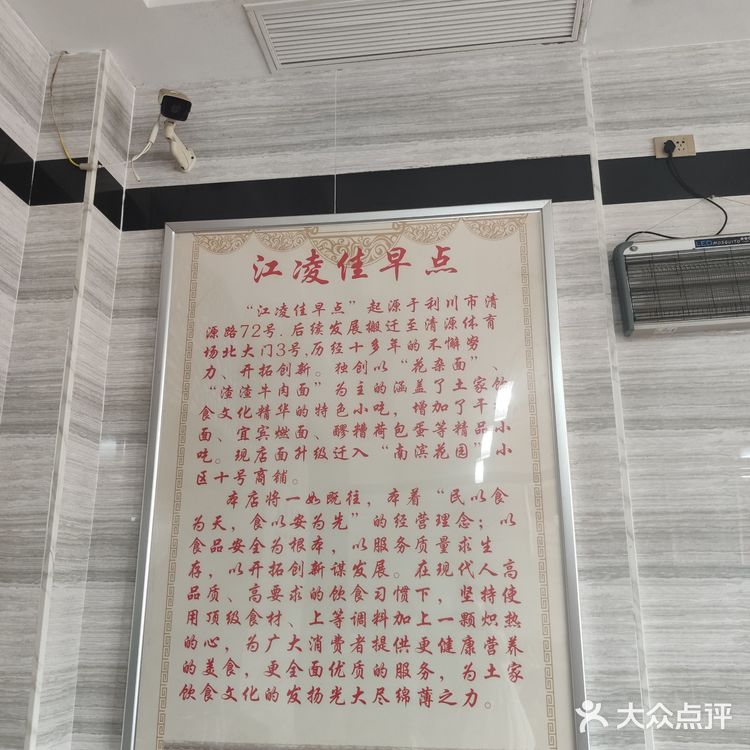 江凌佳早点
“江凌佳早点”起源于利川市清
源路72号.后续发展搬迁至清源体育
场北大门3号,历经十多年的不懈努
力、开拓创新。独创以“花杂面”、
“渣渣牛肉面”为主的涵盖了土家饮
食文化精华的特色小吃,增加了干
面、宜宾燃面、醪糟荷包蛋等精品小
吃。现店面升级迁入“南滨花园”小
区十号商铺。
本店将一如既往,本着“民以食
为天,食以安为先”的经营理念;以
食品安全为根本,以服务质量求生
存,以开拓创新谋发展。在现代人高
品质、高要求的饮食习惯下,坚持使
用顶级食材、上等调料加上一颗炽热
的心,为广大消费者提供更健康营养
的美食,更全面优质的服务,为土家
饮食文化的发扬光大尽绵薄之力。
LED MOSQUITO
大众点评